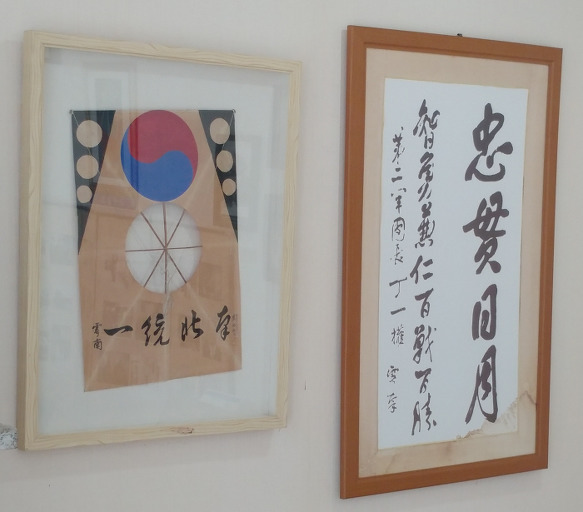 南北統一
雩南
忠貫日月
智勇兼仁百戰百勝
第二軍團長 丁一權 雩南